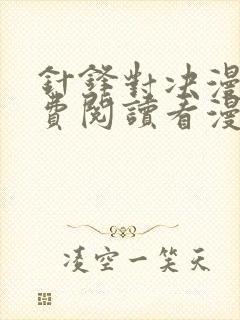 針鋒對决漫
費閱讀看漫
凌空一笑天